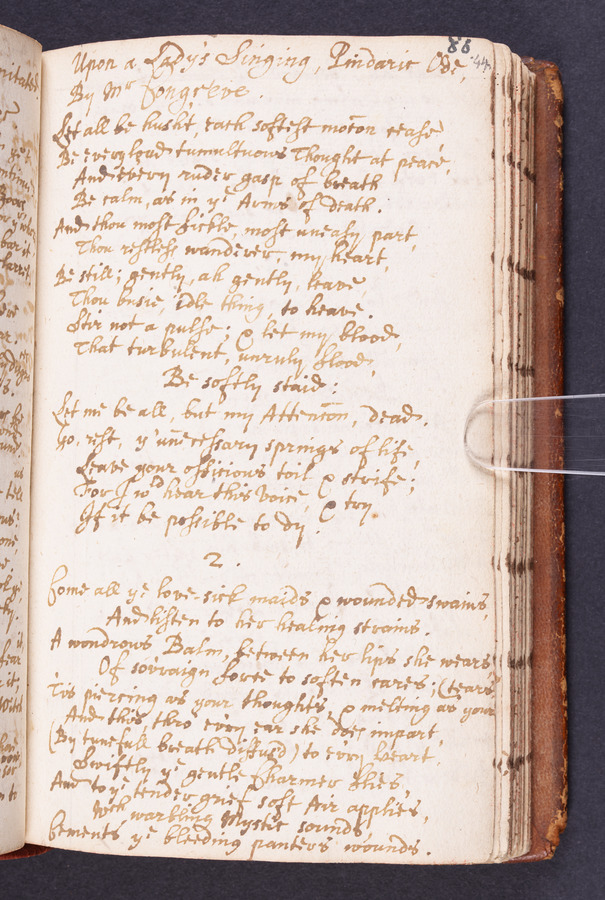 86
44
Upon a Lady's Singing, Pindaric Ode,
By Mr Congreve.
Let all be husht, each softest motion cease,
Be every loud tumultuous Thought at peace,
And every ruder gasp of breath
Be calm, as in ye Arms of death.
And thou most fickle, most uneasy part,
Thou restless wanderer, my heart,
Be still; gently, ah gently, leave,
Thou busie, idle thing, to heave.
Stir not a pulse; & let my blood,
That turbulent, unruly flood,
Be softly staid:
Let me be all, but my Attention, dead.
Go, rest, unnecessary springs of life,
Leave your officious toil & strife;
For I wd hear this voice, & try
If it be possible to dy.
2.
Come all ye love-sick maids & wounded swains,
And listen to her healing strains.
A wondrous Balm, between her lips she wears,
Of sov'raign force to soften cares; (tears
Tis piercing as your thoughts, & melting as your
And this thro' ev'ry ear she does impart,
(By tunefull breath diffus'd) to ev'ry heart.
Swiftly ye gentle Charmer flies,
And to ye tender grief soft Air applies,
Wch warbling Mystic sounds,
Cements ye bleeding panter's wounds.